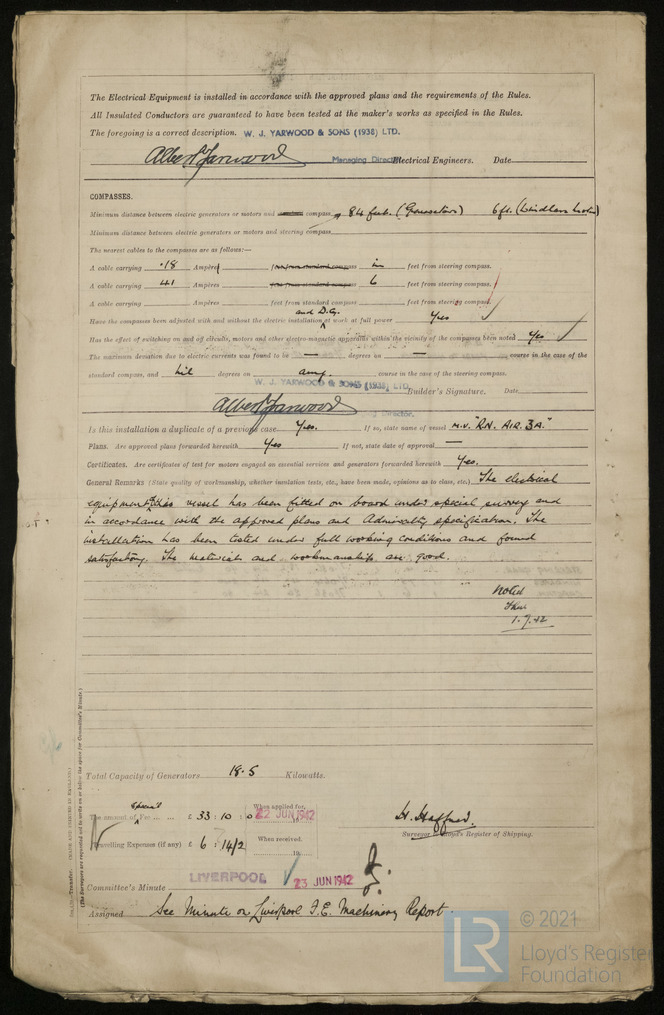 The Electrical Equipment is installed in accordance with the approved plans and the requirements of the Rules.
All Insulated Conductors are guaranteed to have been tested at the maker's works as specified in the Rules.
The foregoing is a correct description. W. J. YARWOOD & SONS (1938) LTD.
Albert Yarwood Managing Director Electrical Engineers. Date
COMPASSES.
Minimum distance between electric generators or motors and compass 84 feet. (Generators) 6 ft. (Windlass motor)
Minimum distance between electric generators or motors and steering compass
The nearest cables to the compasses are as follows:—
A cable carrying .18 Ampères feet from standard compass in feet from steering compass.
A cable carrying 41 Ampères feet from standard compass 6 feet from steering compass.
A cable carrying Ampères feet from standard compass feet from steering compass.
and D.G.
Have the compasses been adjusted with and without the electric installation at work at full power Yes
Has the effect of switching on and off circuits, motors and other electro-magnetic apparatus within the vicinity of the compasses been noted Yes
The maximum deviation due to electric currents was found to be — degrees on — course in the case of the
standard compass, and Nil degrees on any course in the case of the steering compass.
W. J. YARWOOD & SONS (1938) LTD. Builder's Signature. Date
Albert Yarwood Managing Director.
Is this installation a duplicate of a previous case Yes. If so, state name of vessel M.V. "R.N. AIR. 3A."
Plans. Are approved plans forwarded herewith Yes If not, state date of approval —
Certificates. Are certificates of test for motors engaged on essential services and generators forwarded herewith Yes.
General Remarks (State quality of workmanship, whether insulation tests, etc., have been made, opinions as to class, etc.) The electrical
equipment of this vessel has been fitted on board under special survey and
in accordance with the approved plans and Admiralty specification. The
installation has been tested under full working conditions and found
satisfactory. The materials and workmanship are good.
Noted
1.7.42
Total Capacity of Generators 18.5 Kilowatts.
Special
The amount of Fee £ 33 : 10 : 0 When applied for, 22 JUN 1942
Travelling Expenses (if any) £ 6 : 14/2 When received. 19
Surveyor to Lloyd's Register of Shipping.
LIVERPOOL 23 JUN 1942
Committee's Minute
Assigned See Minute on Liverpool F.E. Machinery Report.
(The Surveyors are requested not to write on or below the space for Committee's Minute.)
LR © 2021
Lloyd's Register
Foundation